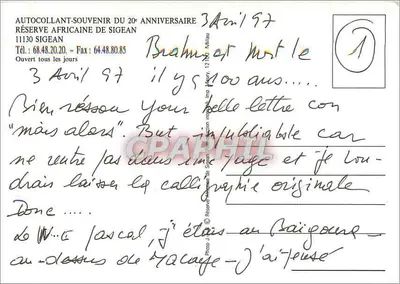 AUTOCOLLANT-SOUVENIR DU 20e ANNIVERSAIRE
RÉSERVE AFRICAINE DE SIGEAN
11130 SIGEAN
Tél. : 68.48.20.20. – Fax : 64.48.80.85
Ouvert tous les jours
3 Avril 97
1
Brahms est mort le
3 Avril 97 il y a 100 ans.....
Bien your belle lettre con
"mais alors". But impubliable car
ne rentre pas dans une page et je vou-
drais laisser la calligraphie originale
Donc .....
Le W-E pascal, j'étais au Baigoura
au-dessus de Macaye – j'ai
CPARAMA